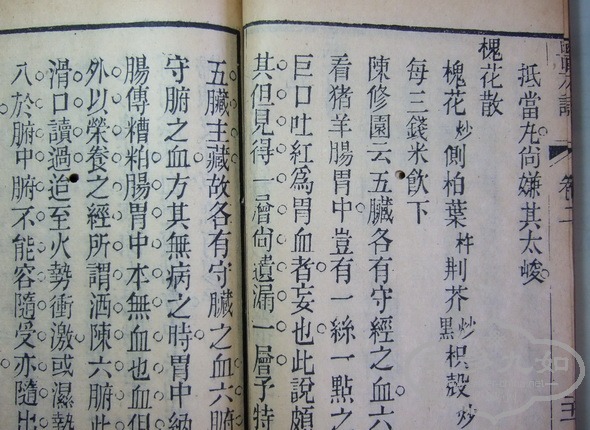 抵當丸尚嫌其太峻
槐花散
槐花炒側柏葉杵荊芥炒黑枳殼炒
每三錢米飲下
陳修園云五臟各有守經之血六
看猪羊腸胃中豈有一絲一點之
巨口吐紅爲胃血者妄也此說頗
其但見得一層尙遺漏一層予特
五臟主藏故各有守臟之血六腑
守腑之血方其無病之時胃中納
腸傳糟粕腸胃中本無血也血但
外以榮養之經所謂洒陳六腑此
滑口讀過迨至火勢衝激或濕熱
八於腑中腑不能容隨受亦隨出
卷二